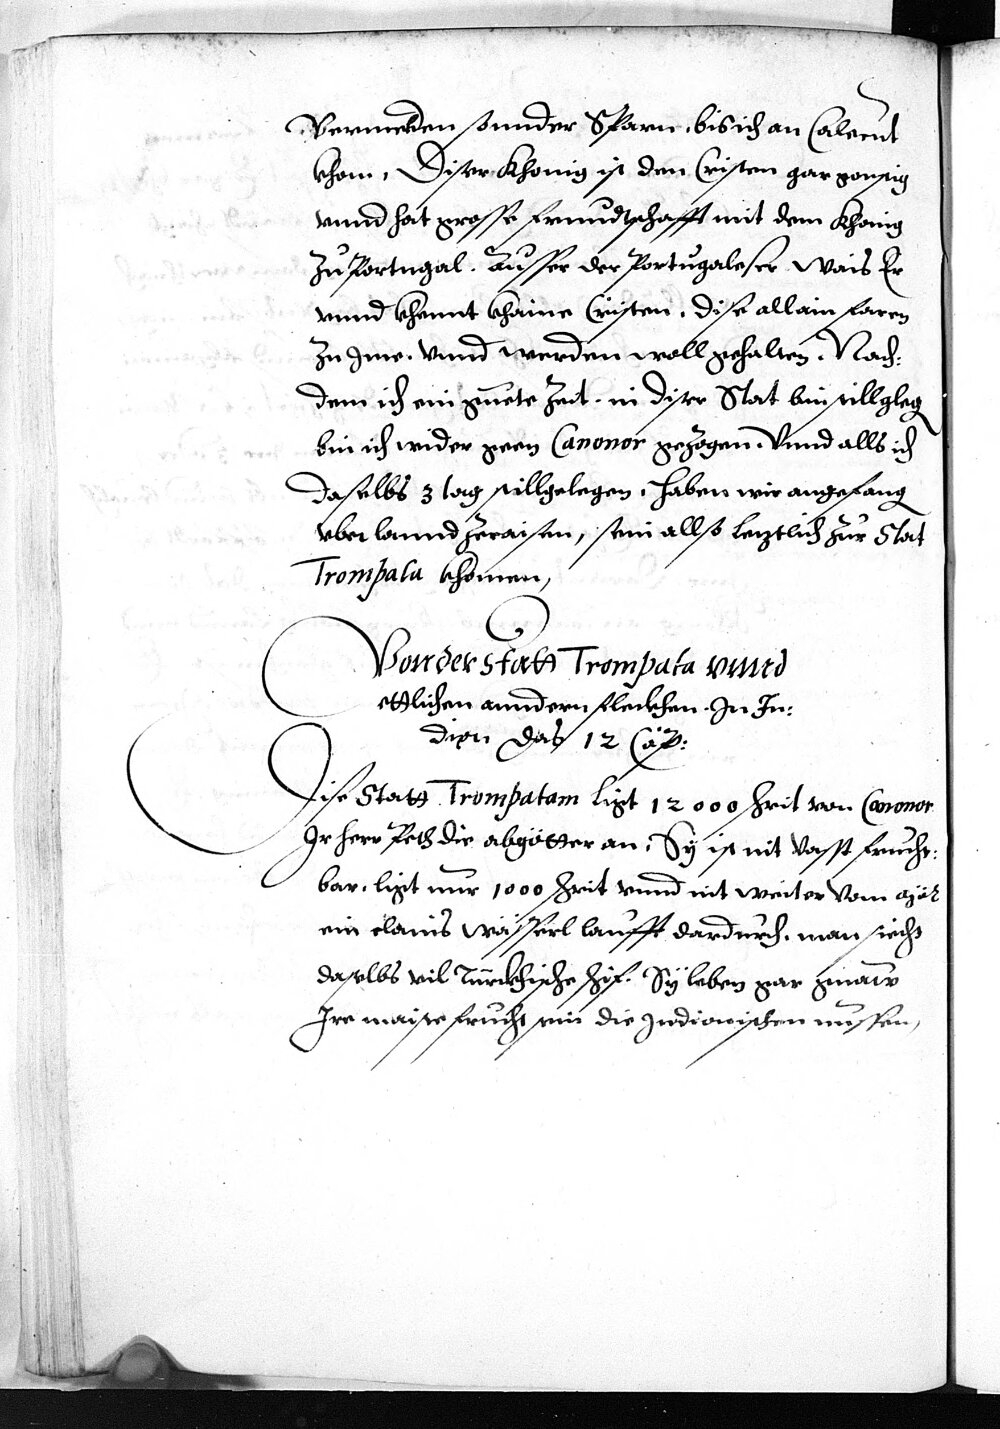 Vermelden sonnder Sparn, bis ich an Calecut
khom, Diser Khonig ist den Cristen gar gonstig
vnnd hat grosse freundtschafft mit dem Khonig
zu Portugal. Ausser der Portugaleser Wais Er
vnnd khennt khaine Cristen, dise allain faren
zu Ime. Vnnd werden woll gehalten. Nach:
dem ich ein guete Zeit in diser Stat bin stillgleg
bin ich wider geen Canonor gezogen, Vnnd alls ich
daselbs 3 tag stillgelegen, haben wir angefang
vber lannd zeraisen, sein allso letztlich zur Stat
Trompata khomen,
Von der Statt Trompata vnnd
ettlichen anndern fleckhen In In:
dien das 12 Cap:
Dise Statt Trompatam ligt 12000 schrit von Canonor
Ir herr Peth die abgötter an, Sy ist nit vasst frucht:
bar, ligt nur 1000 schrit vnnd nit weiter Vom
ein clains Wässerl laufft dardurch, man siecht
daselbs vil Türckhische schif. Sy leben gar gmain
Ire maiste frucht sein die Indionischen nussen,